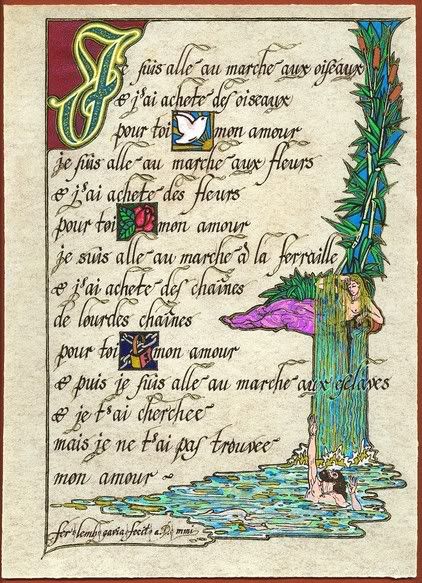 Je suis alle au marche aux oiseaux
& j'ai achete des oiseaux
pour toi mon amour
je suis alle au marche aux fleurs
& j'ai achete des fleurs
pour toi mon amour
je suis alle au marche à la ferraille
& j'ai achete des chaînes
de lourdes chaînes
pour toi mon amour
& puis je suis alle au marche aux esclaves
& je t'ai cherchee
mais je ne t'ai pas trouvee
mon amour
fecit a.D. mmi